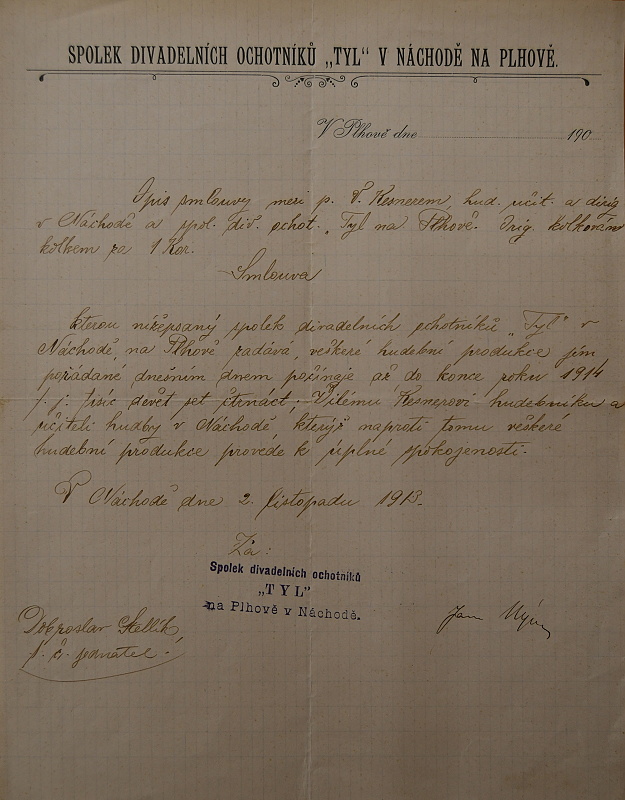 SPOLEK DIVADELNÍCH OCHOTNÍKŮ „TYL“ V NÁCHODĚ NA PLHOVĚ.
V Plhově dne 190
Opis smlouvy mezi p. V. Kesnerem, hud. učit. a dirig.
v Náchodě a spol. div. ochot. „Tyl na Plhově. Orig. kolkován
kolkem za 1 Kor.
Smlouva
kterou nížepsaný spolek divadelních ochotníků „Tyl“ v
Náchodě, na Plhově zadává, veškeré hudební produkce jím
pořádané dnešním dnem počínaje až do konce roku 1914
t. j. tisíc devět set čtrnáct, Vilému Kesnerovi hudebníku a
učiteli hudby v Náchodě, kterýž naproti tomu veškeré
hudební produkce provede k úplné spokojenosti.
V Náchodě dne 2. listopadu 1913.
Za:
Spolek divadelních ochotníků
„TYL”
na Plhově v Náchodě.
Dobroslav
t. č. jednatel.
Jan